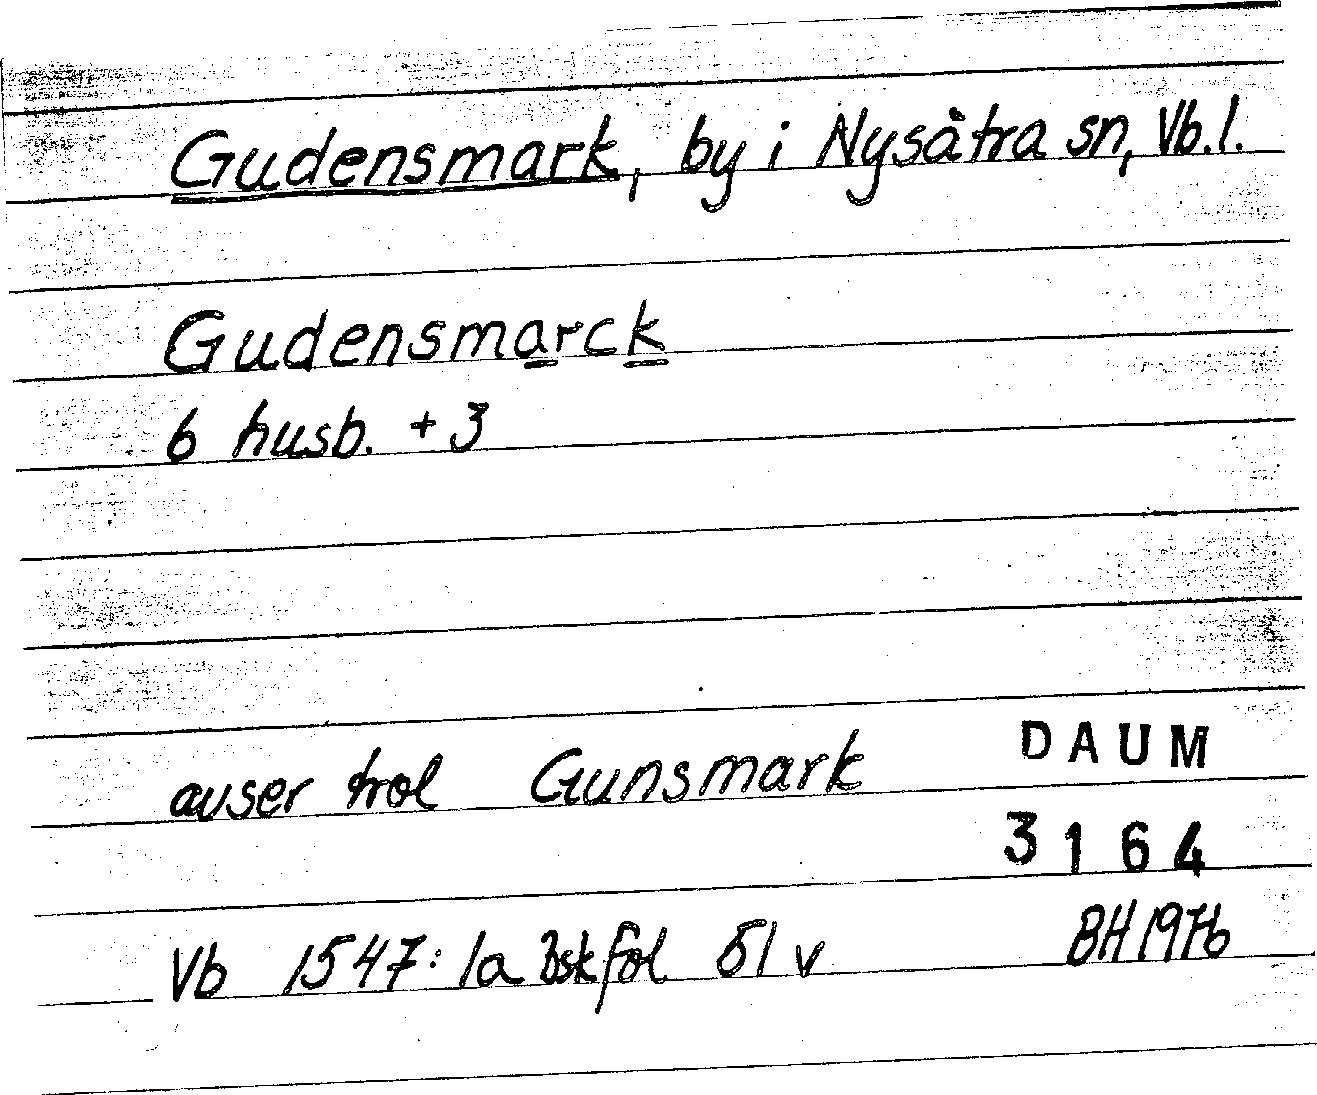 Gudensmark, by i Nysätra sn, Vb.l.
Gudensmarck
6 husb. + 3
avser trol Gunsmark
DAUM
3164
Vb 1547: 1a Bskfol 51 v
BH 1976